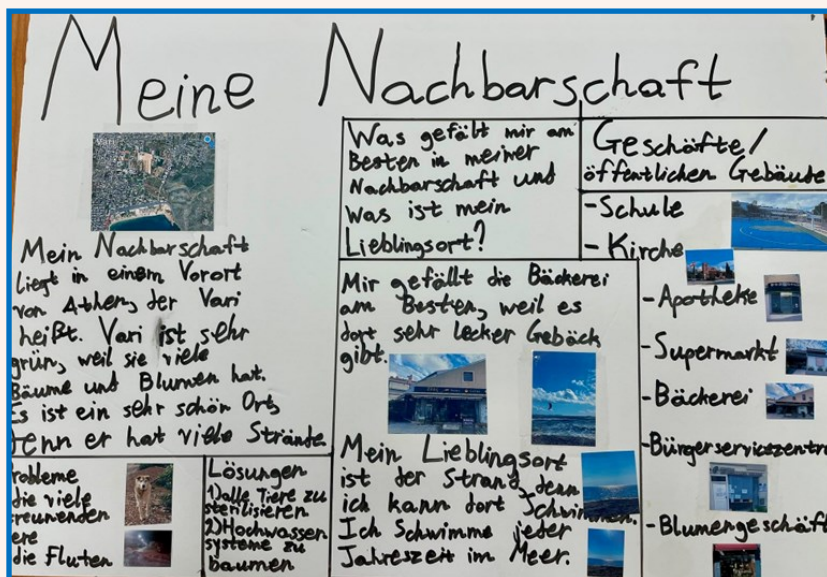 Meine Nachbarschaft
Vari
Mein Nachbarschaft
liegt in einem Vorort
von Athen, der Vari
heißt. Vari ist sehr
grün, weil sie viele
Bäume und Blumen hat.
Es ist ein sehr schön Ort,
denn er hat viele Strände
robleme
die viele
treunenden
ere
die Fluten
Lösungen
1) alle Tiere zu
sterilisieren
2) Hochwasser
systeme zu
baumen
Was gefällt mir am
Besten in meiner
Nachbarschaft und
Was ist mein
Lieblingsort?
Mir gefällt die Bäckerei
am Besten, weil es
dort sehr lecker Gebäck
gibt.
Mein Lieblingsort
ist der Strand, denn
ich kann dort Schwimmen.
Ich Schwimme jeter
Jahreszeit im Meer.
Geschäfte/
öffentlichen Gebäude
- Schule
- Kirche
- Apotheke
- Supermarkt
- Bäckerei
- Bürgerservicezentru
- Blumengeschäft